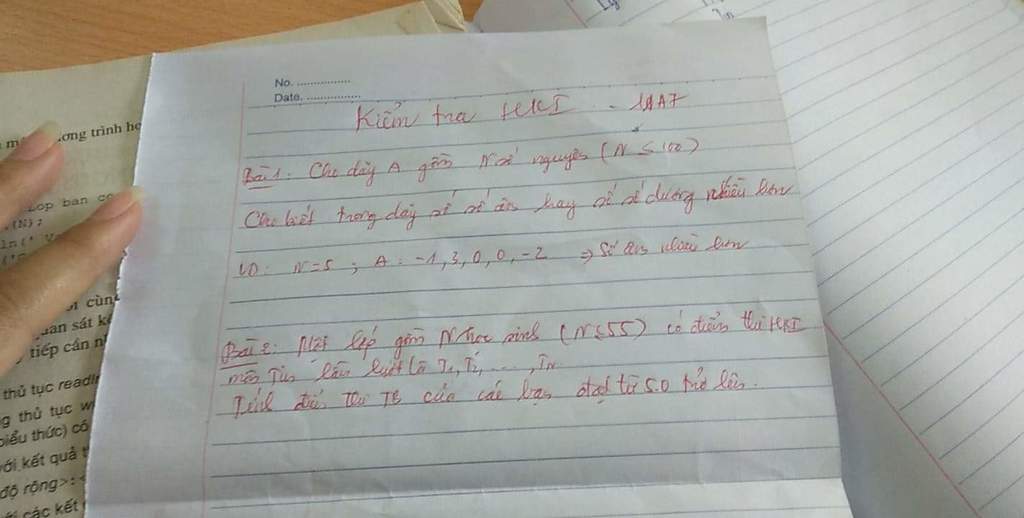 No. ................
Date. ................
Kiểm tra HKI - 11A7
Bài 1: Cho dãy A gồm N số nguyên (N ≤ 100)
Cho biết trong dãy số số âm hay số số dương nhiều hơn
VD: N=5 ; A: -1, 3, 0, 0, -2 ⇒ Số âm nhiều hơn
Bài 2: Một lớp gồm N học sinh (N ≤ 55) có điểm thi HKI
môn Tin lần lượt là T₁, T₂, ..., Tɴ.
Tính điểm thi TB của các bạn đạt từ 5.0 trở lên.
ương trình họ
Lop ban co
(N);
cùng
uan sát k
tiếp cận n
thủ tục readln
g thủ tục w
biểu thức) có
với kết quả t
độ rộng>: <
với các kết